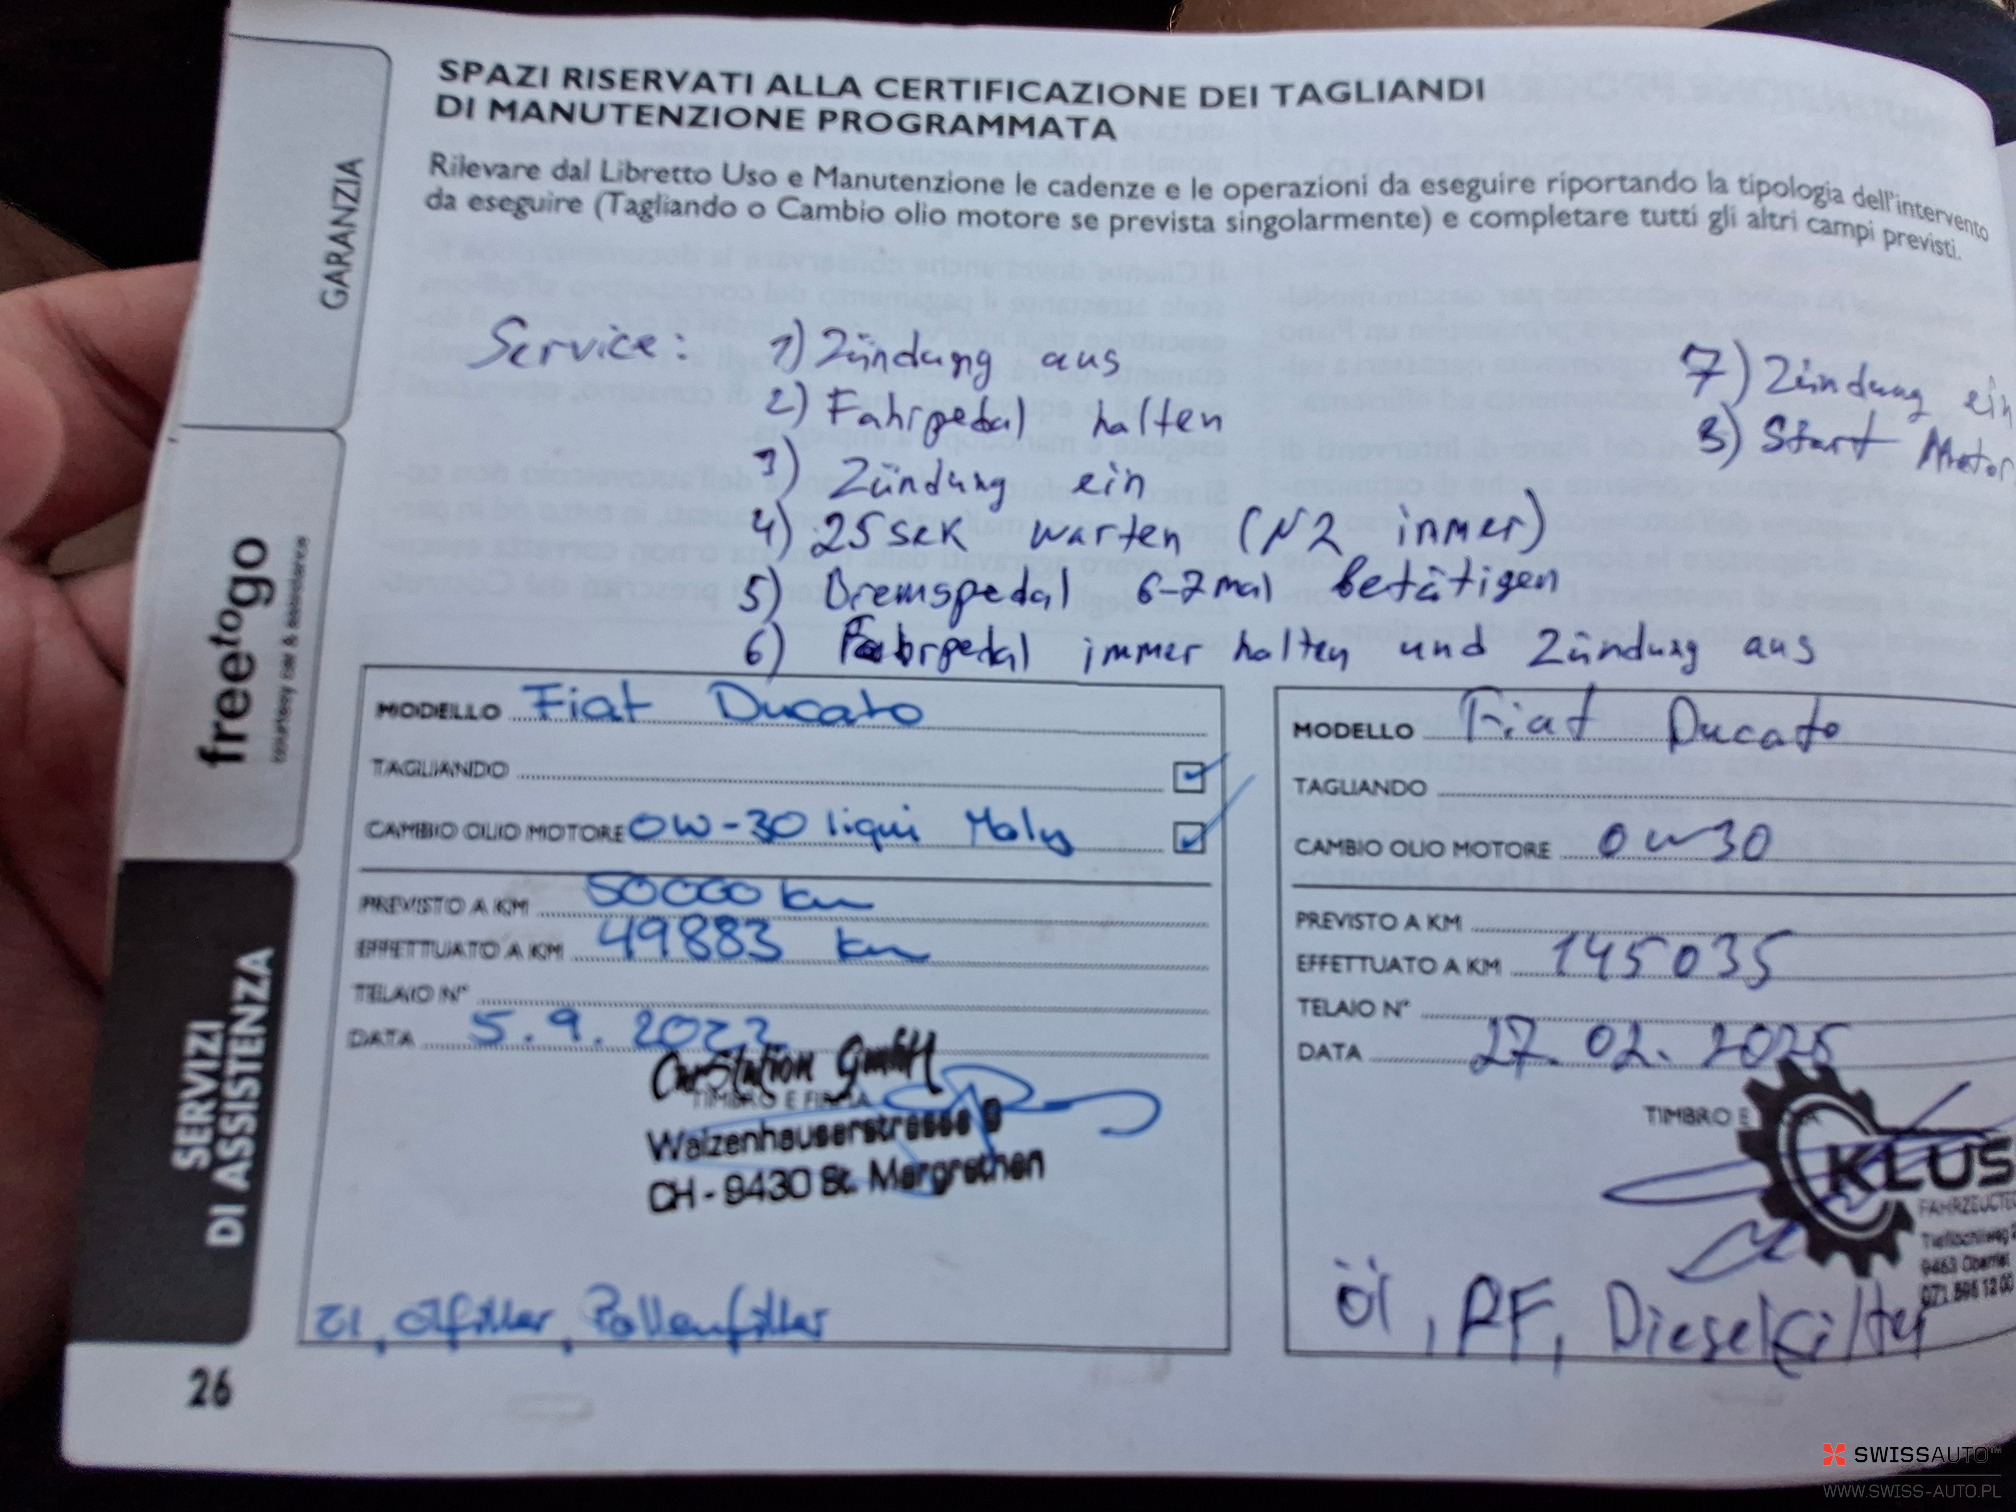 SPAZI RISERVATI ALLA CERTIFICAZIONE DEI TAGLIANDI
DI MANUTENZIONE PROGRAMMATA
Rilevare dal Libretto Uso e Manutenzione le cadenze e le operazioni da eseguire riportando la tipologia dell'intervento
da eseguire (Tagliando o Cambio olio motore se prevista singolarmente) e completare tutti gli altri campi previsti.
GARANZIA
freetogo
courtesy car & assistance
SERVIZI
DI ASSISTENZA
26
Service: 1) Zündung aus
2) Fahrpedal halten
3) Zündung ein
4) 25 sek warten (N2 inmer)
5) Bremspedal 6-7mal betätigen
6) Fahrpedal immer halten und Zündung aus
7) Zündung ein
8) Start Motor
MODELLO Fiat Ducato
TAGLIANDO
CAMBIO OLIO MOTORE 0W-30 liqui Moly
PREVISTO A KM 50000 km
EFFETTUATO A KM 49883 km
TELAIO N°
DATA 5.9.2022
CarStation GmbH
TIMBRO E FIRMA
Walzenhauserstrasse 9
CH - 9430 St. Margrethen
Öl, Ölfilter, Pollenfilter
MODELLO Fiat Ducato
TAGLIANDO
CAMBIO OLIO MOTORE 0w30
PREVISTO A KM
EFFETTUATO A KM 145035
TELAIO N°
DATA 27.02.2025
TIMBRO E
KLUS
FAHRZEUGTE
9463 Oberriet
071 596 12 00
Öl, PF, Dieselfilter
SWISSAUTO™
WWW.SWISS-AUTO.PL